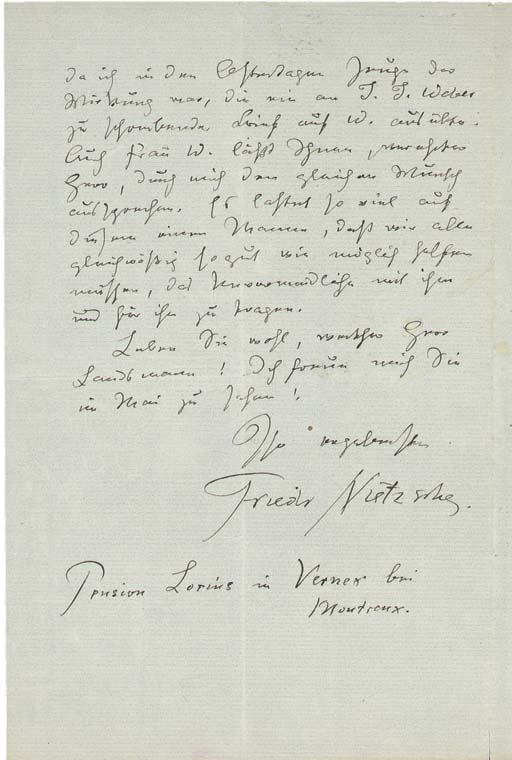 da ich in den Ostertagen Zeuge der
Wirkung war, die ein an J. J. Weber
zu schreibender Brief auf W. ausübte.
Auch Frau W. läßt Ihnen, verehrter
Herr, durch mich den gleichen Wunsch
aussprechen. Es lastet so viel auf
diesem einen Manne, daß wir alle
gleichmäßig so gut wie möglich helfen
müssen, das Unvermeidliche mit ihm
und für ihn zu tragen.
Leben Sie wohl, werther Herr
Landsmann! Ich freue mich Sie
im Mai zu sehen!
Ihr ergebenster
Friedr Nietzsche.
Pension Lorius in Vernex bei
Montreux.